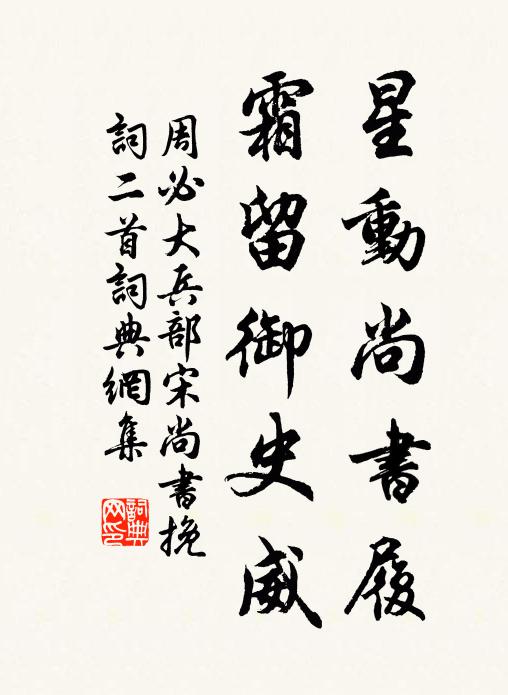 星動尚書履
霜留御史威
周必大兵部宋尚書挽
詞二首詞典網集
詞典网印